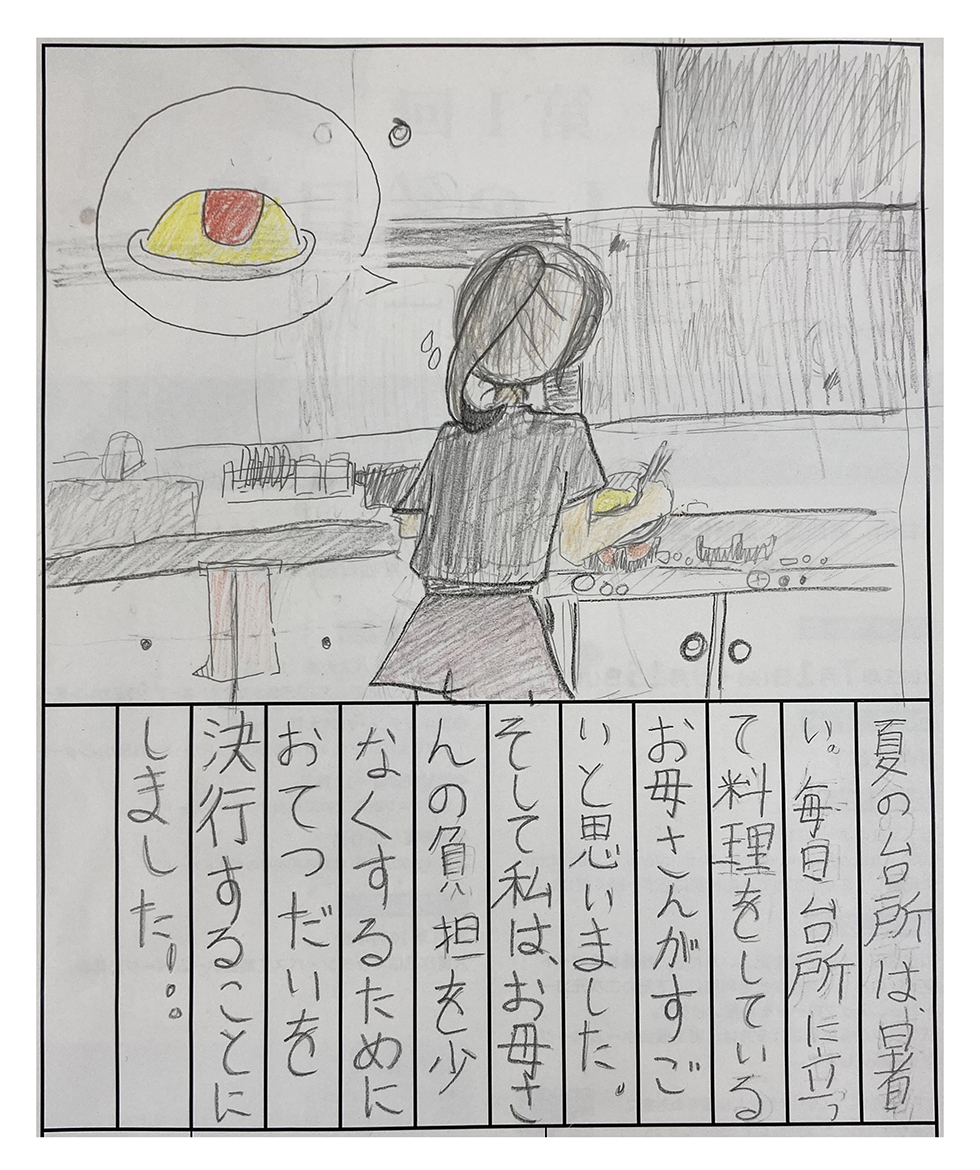 夏の台所は、暑
い。毎日台所に立っ
て料理をしている
お母さんがすご
いと思いました。
そして私は、お母さ
んの負担を少
なくするために
おてつだいを
決行することに
しました!!